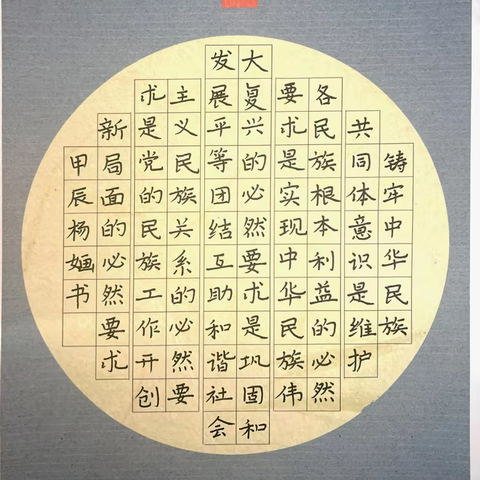 铸牢中华民族
共同体意识是维护
各民族根本利益的必然
要求是实现中华民族伟
大复兴的必然要求是巩固和
发展平等团结互助和谐社会
主义民族关系的必然要
求是党的民族工作开创
新局面的必然要求
甲辰杨婳书